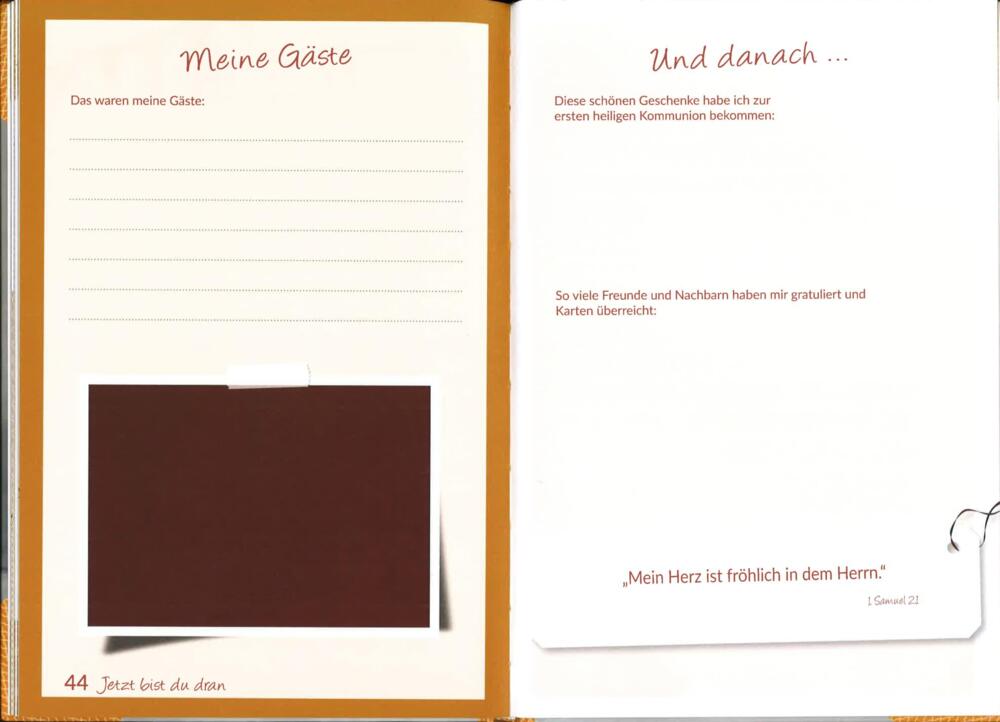 Meine Gäste
Das waren meine Gäste:
44 Jetzt bist du dran
Und danach ...
Diese schönen Geschenke habe ich zur
ersten heiligen Kommunion bekommen:
So viele Freunde und Nachbarn haben mir gratuliert und
Karten überreicht:
„Mein Herz ist fröhlich in dem Herrn.“
1 Samuel 21